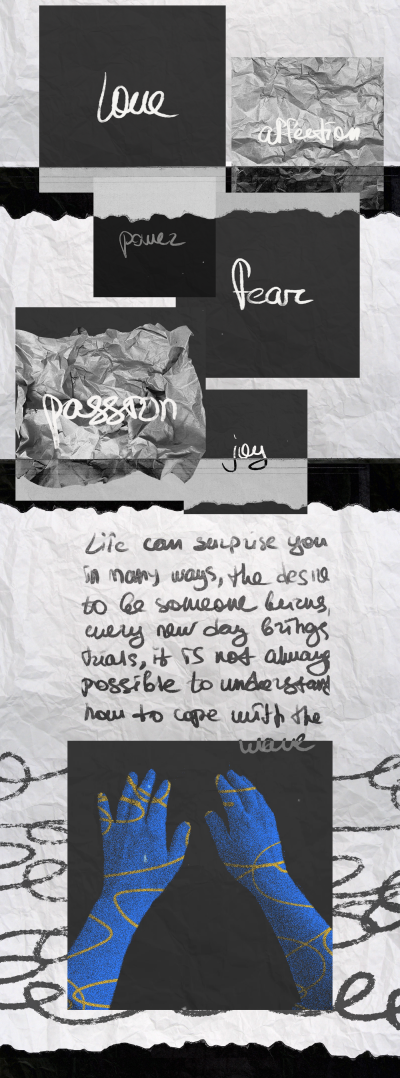 love
affection
power
fear
passion
joy
Life can surprise you
in many ways, the desire
to be someone burns,
every new day brings
trials, it is not always
possible to understand
how to cope with the
wave